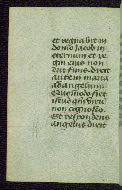 et regnabit in
domo iacob in
eternum et re
gni eius non
erit finis. dixit
autem maria
ad angelum.
Quomodo fiet
istud qm viru
non cognosco.
Et respondens
angelus dixit